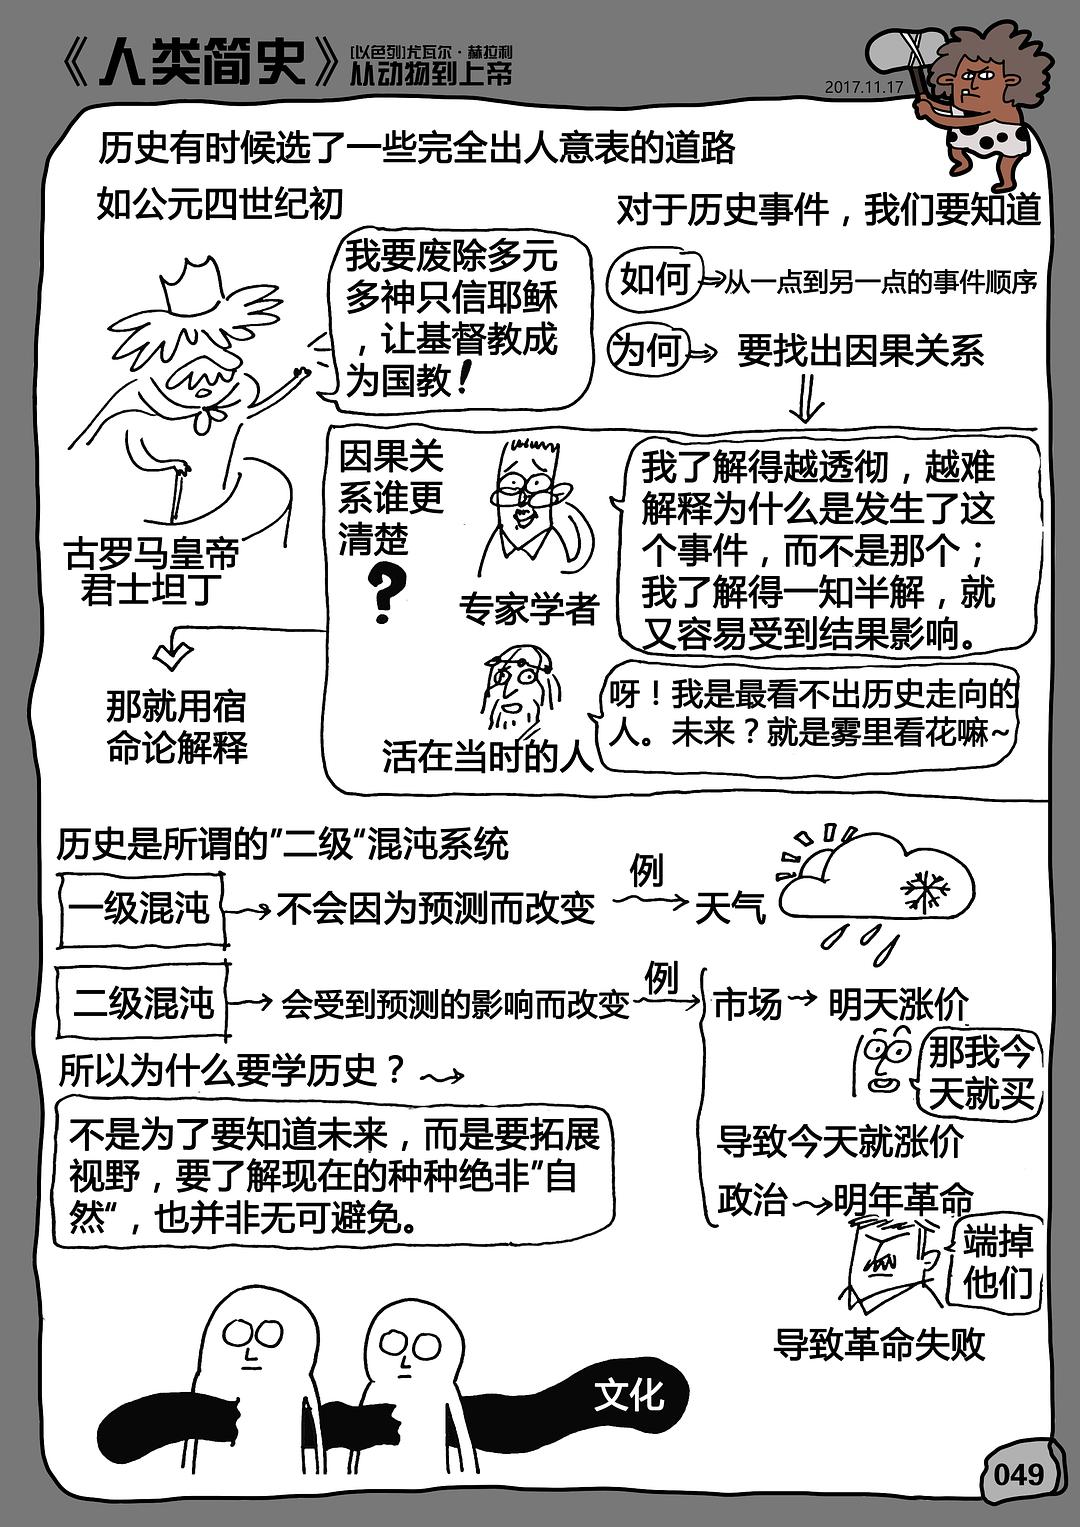 《人类简史》
[以色列]尤瓦尔·赫拉利
从动物到上帝
2017.11.17
历史有时候选了一些完全出人意表的道路
如公元四世纪初
我要废除多元
多神只信耶稣
，让基督教成
为国教！
古罗马皇帝
君士坦丁
对于历史事件，我们要知道
如何
从一点到另一点的事件顺序
为何
要找出因果关系
因果关
系谁更
清楚
?
专家学者
我了解得越透彻，越难
解释为什么是发生了这
个事件，而不是那个；
我了解得一知半解，就
又容易受到结果影响。
活在当时的人
呀！我是最看不出历史走向的
人。未来？就是雾里看花嘛~
那就用宿
命论解释
历史是所谓的"二级"混沌系统
一级混沌
不会因为预测而改变
例
天气
二级混沌
会受到预测的影响而改变
例
市场
明天涨价
那我今
天就买
导致今天就涨价
政治
明年革命
端掉
他们
导致革命失败
所以为什么要学历史？
不是为了要知道未来，而是要拓展
视野，要了解现在的种种绝非"自
然"，也并非无可避免。
文化
049